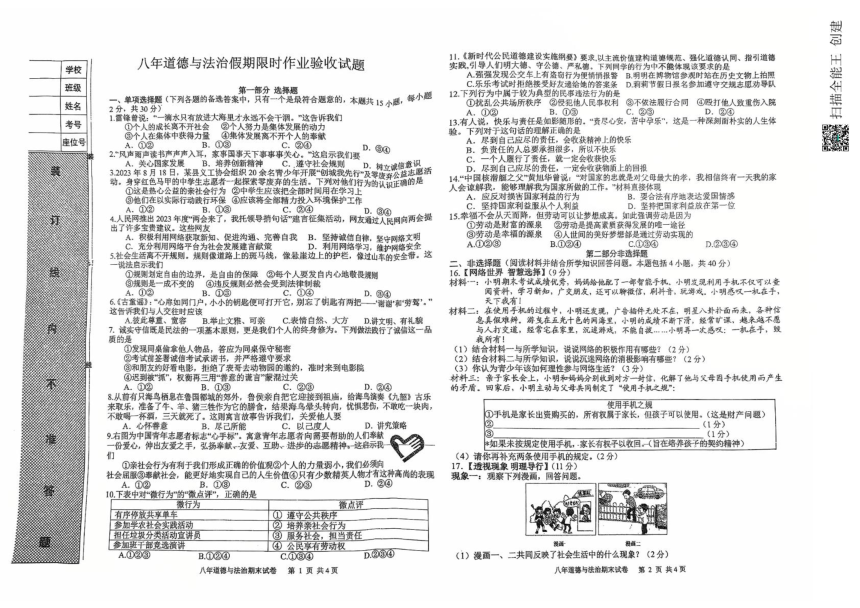 学校
班级
姓名
考号
座位号
装
订
线
内
不
准
答
题
八年道德与法治假期限时作业验收试题
第一部分 选择题
一、单项选择题（下列各题的备选答案中，只有一个是最符合题意的，本题共 15 小题，每小题
2 分，共 30 分）
1.雷锋曾说：“一滴水只有放进大海里才永远不会干涸。”这告诉我们
①个人的成长离不开社会 ②个人努力是集体发展的动力
③个人在集体中获得力量 ④集体发展离不开个人的奉献
A．①② B．①③ C．②④ D．③④
2.“风声雨声读书声声声入耳，家事国事天下事事事关心。”这启示我们要
A．关心国家发展 B．培养创新精神 C．遵守社会规则 D．树立诚信意识
3.2023 年 8 月 18 日，某县义工协会组织 20 余名青少年开展“创城我先行”及零废弃公益志愿活
动。身穿红色马甲的中学生志愿者一起探索零废弃的生活。下列对他们行为的认识正确的是
①这是热心公益的亲社会行为 ②中学生应该把全部时间用在学习上
③他们在以实际行动践行环保 ④应该将全部精力投入环境保护工作
A．①② B．①③ C．②④ D．③④
4.人民网推出 2023 年度“两会来了，我托领导捎句话”建言征集活动，网友通过人民网向两会提
出了许多宝贵建议。这些网友
A．积极利用网络获取新知、促进沟通、完善自我 B．坚持诚信自律，坚守网络文明
C．充分利用网络平台为社会发展建言献策 D．利用网络学习，维护网络安全
5.社会生活离不开规则。规则像道路上的斑马线，像悬崖边上的护栏，像过山车的安全带。这
一说法启示我们
①规则划定自由的边界，是自由的保障 ②每个人要发自内心地敬畏规则
③规则是一成不变的 ④违反规则必然会受到法律制裁
A．①② B．①③ C．①④ D．③④
6.《古童谣》：“心扉如同门户，小小的钥匙便可打开它，别忘了钥匙有两把——‘谢谢’和‘劳驾’。”
这告诉我们与人交往时应该
A.彼此尊重、宽容 B.举止文雅、可亲 C.表情自然、大方 D.讲文明，有礼貌
7. 诚实守信既是民法的一项基本原则，更是我们个人的终身修为。下列做法践行了诚信这一品
质的是
①发现同桌偷拿他人物品，答应为同桌保守秘密
②考试前签署诚信考试承诺书，并严格遵守要求
③和朋友约好看电影，拒绝了表哥去动物园的邀约，准时来到电影院
④迟到被“抓”，权衡再三用“善意的谎言”蒙混过关
A．①② B．①③ C．②③ D．②④
8.从前有只海鸟栖息在鲁国都城的郊外，鲁侯亲自把它迎接到祖庙，给海鸟演奏《九韶》古乐
来取乐，准备了牛、羊、猪三牲作为它的膳食，结果海鸟晕头转向，忧惧悲伤，不敢吃一块肉，
不敢喝一杯酒，三天就死了。这则寓言故事告诉我们，关爱他人要
A．心怀善意 B．尽己所能 C．以己度人 D．讲究策略
9.右图为中国青年志愿者标志“心手标”。寓意青年志愿者向需要帮助的人们奉献
一份爱心，伸出友爱之手，弘扬奉献、友爱、互助、进步的志愿精神。这启示我
们
①亲社会行为有利于我们形成正确的价值观②个人的力量弱小，我们必须向
社会屈服③奉献社会，能更好地实现自己的人生价值④只有少数精英人物才有这种高尚的表现
A．①② B．①③ C．②③ D．②④
10.下表中对“微行为”的“微点评”，正确的是
微行为 微点评
有序停放共享单车 ① 遵守公共秩序
参加学农社会实践活动 ② 培养亲社会行为
担任垃圾分类活动宣讲员 ③ 服务社会，担当责任
参加班干部竞选演讲 ④ 公民享有劳动权
A.①②③ B.①②④ C.①③④ D.②③④
八年道德与法治期末试卷 第 1 页 共 4 页
11.《新时代公民道德建设实施纲要》要求,以主流价值建构道德规范、强化道德认同、指引道德
实践,引导人们明大德、守公德、严私德。下列同学的行为中不能体现该要求的是
A.强强发现公交车上有盗窃行为便悄悄报警 B.明明在博物馆参观时站在历史文物上拍照
C.乐乐考试时拒绝接受好友递给他的答案条 D.莉莉节假日报名参加遵守交规志愿劝导队
12.下列行为中属于较为典型的民事违法行为的是
①扰乱公共场所秩序 ②侵犯他人民事权利 ③不依法履行合同 ④殴打他人致重伤入院
A．①② B．①③ C．②③ D．②④
13.有人说，快乐与责任是如影随形的。“责尽心安，苦中寻乐”，这是一种深刻而朴实的人生体
验。下列对于这句话的理解正确的是
A．尽到自己应尽的责任，会收获精神上的快乐
B．负责任的人总要承担很多，所以不快乐
C．一个人履行了责任，就一定会收获快乐
D．尽到自己应尽的责任，一定会收获物质上的回报
14.“中国核潜艇之父”黄旭华曾说：“对国家的忠就是对父母最大的孝，我相信终有一天我的家
人会谅解我，能够理解我为国家所做的工作。”材料直接体现
A．应反对损害国家利益的行为 B．要合法有序地表达爱国情感
C．坚持国家利益重于个人利益 D．坚持把国家利益放在第一位
15.幸福不会从天而降，但劳动可以让梦想成真。如此强调劳动是因为
①劳动是财富的源泉 ②劳动是提高素质获得发展的唯一途径
③劳动是幸福的源泉 ④人世间的美好梦想都是通过劳动实现的
A.①②③ B.①②④ C.①③④ D.②③④
第二部分非选择题
二、非选择题（阅读材料并结合所学知识回答问题。本题包括 4 小题，共 40 分）
16.【网络世界 智慧选择】(9 分)
材料一：小明期末考试成绩优秀，妈妈给他配了一部智能手机。小明发现利用手机不仅可以查
阅资料，学习新知，广交朋友，还可以聊微信，刷抖音，玩游戏。小明感叹一机在手，
天下我有！
材料二：在使用手机的过程中，小明还发现，广告插件无处不在，明星八卦扑面而来，各种信
息真假难辨，游戈在五光十色的网海里，小明的成绩不断下滑，经常旷课，越来越不愿
与人打交道，经常宅在家里，沉迷游戏，不能自拔……小明再一次感叹：一机在手，毁
我所有！
（1）结合材料一与所学知识，说说网络的积极作用有哪些？（2 分）
（2）结合材料二与所学知识，说说沉迷网络的消极影响有哪些？（2 分）
（3）你认为青少年该如何理性参与网络生活？（3 分）
材料三：亲子家长会上，小明和妈妈分别收到对方一封信，化解了他与父母因手机使用而产生
的矛盾。回家后，小明主动与父母共同制定了“使用手机之规”：
使用手机之规
①手机是家长出资购买的，所有权属于家长，但孩子可以使用。（这是财产问题）
②（1 分）
③（1 分）
*如果未按规定使用手机，家长有权予以收回。（旨在培养孩子的契约精神）
（4）请你再补充两条使用手机的规定。（2 分）
17.【透视现象 明理导行】(11 分)
现象一：观察下列漫画，回答问题。
漫画一 漫画二
（1）漫画一、二共同反映了社会生活中的什么现象？（2 分）
八年道德与法治期末试卷 第 2 页 共 4 页
扫描全能王 创建